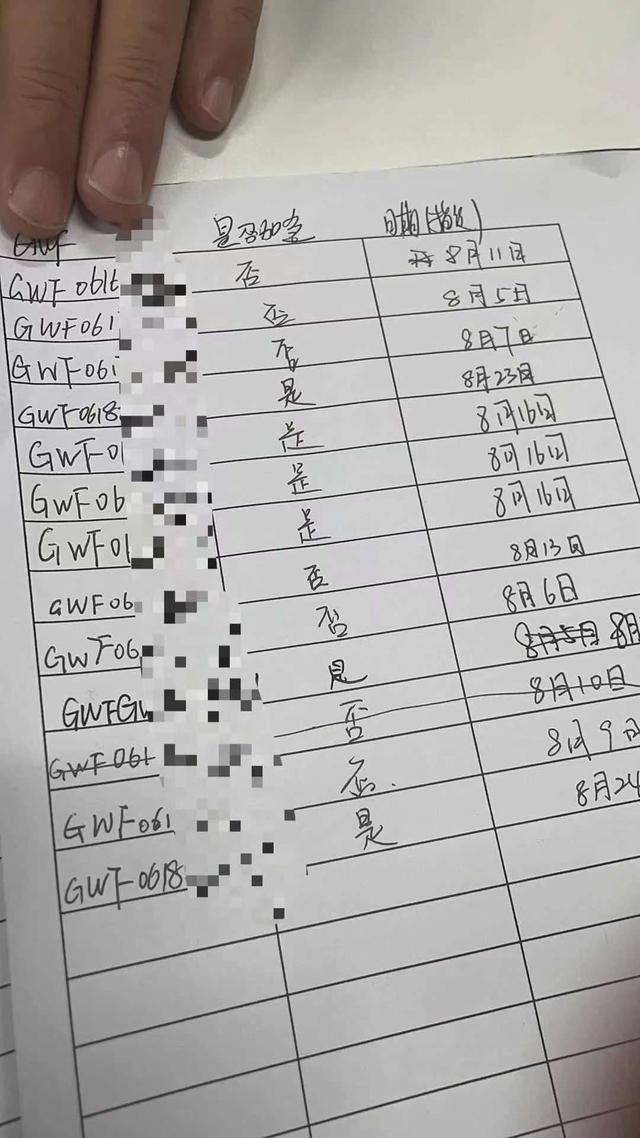 GWF 是否加盖 日期
GWF061 否 8月11日
GWF061 否 8月5日
GWF061 否 8月7日
GWF0618 是 8月23日
GWF0 是 8月16日
GWF06 是 8月16日
GWF01 是 8月16日
GWF06 否 8月13日
GWF06 否 8月6日
GWFGW 是 8月5日 8月
GWF061 否 8月10日
GWF061 否. 8月9日
GWF0618 是 8月24